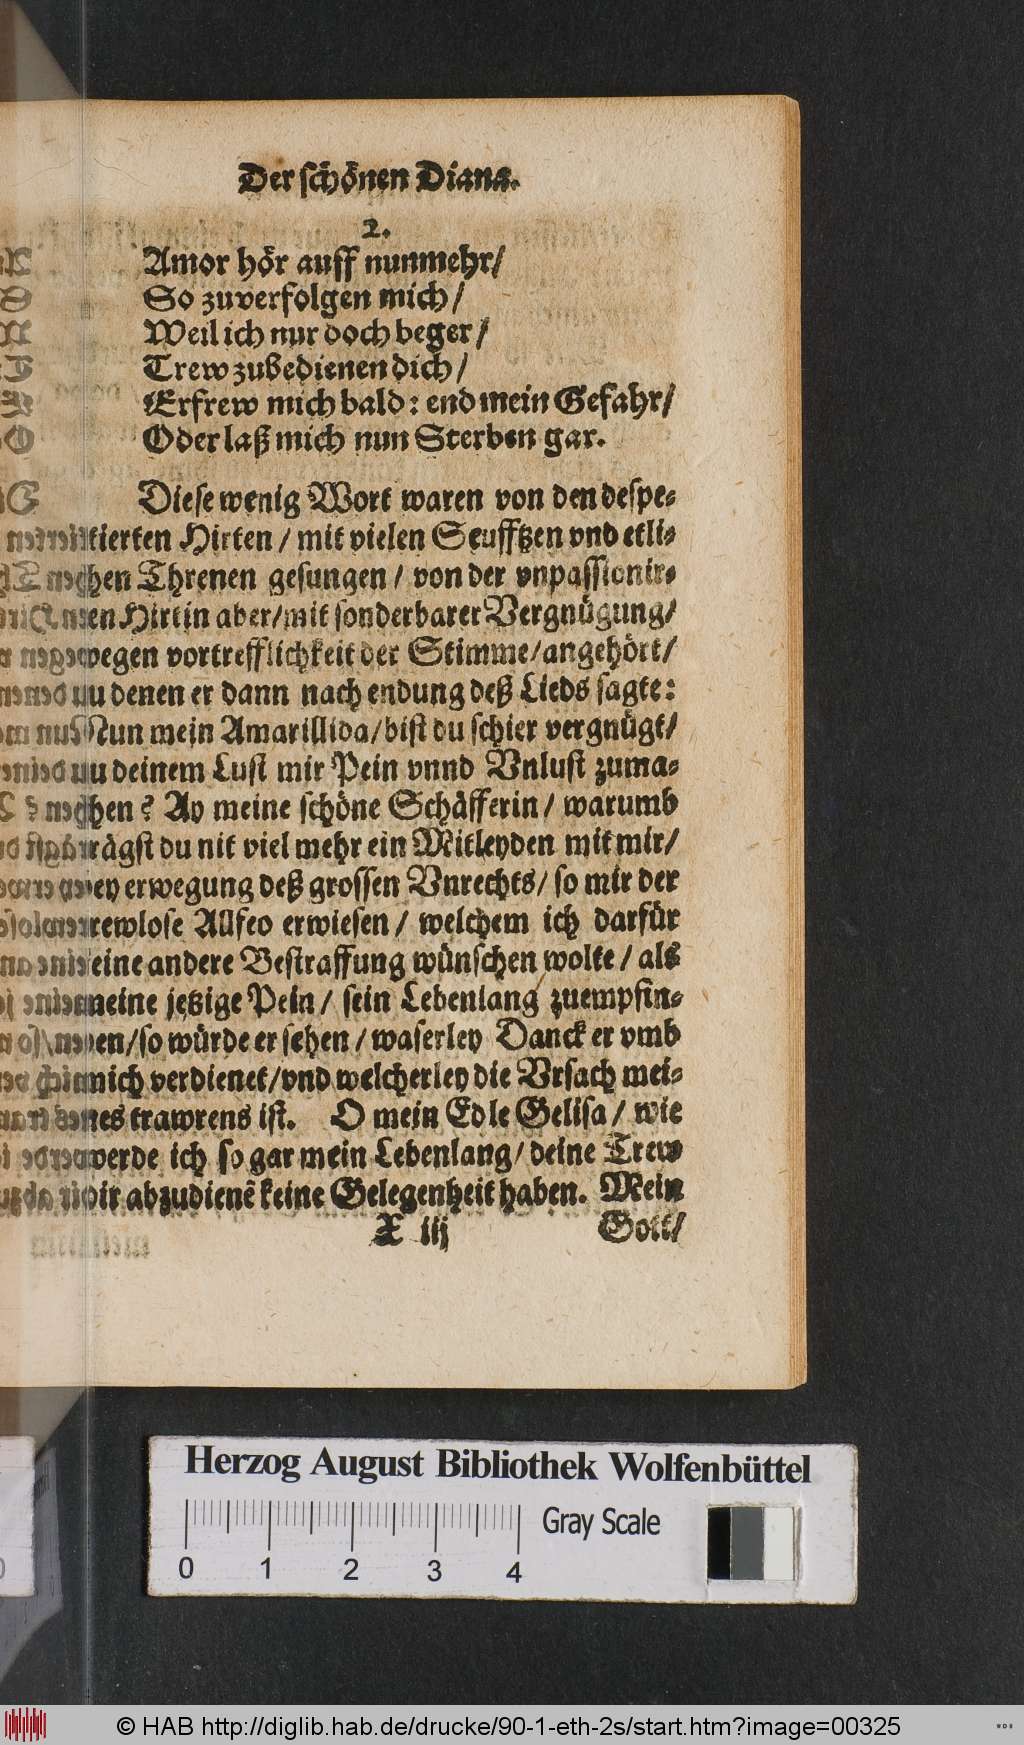 Der schönen Diana.
2.
Amor hör auff nunmehr/
So zuverfolgen mich/
Weil ich nur doch beger/
Trew zubedienen dich/
Erfrew mich bald: end mein Gefahr/
Oder laß mich nun Sterben gar.
Diese wenig Wort waren von den despe-
tierten Hirten / mit vielen Seufftzen vnd etli-
chen Threnen gesungen / von der vnpassionir-
en Hirtin aber/mit sonderbarer Vergnügung/
wegen vortrefflichkeit der Stimme/angehört/
zu denen er dann nach endung deß Lieds sagte:
Nun mein Amarillida/bist du schier vergnügt/
zu deinem Lust mir Pein vnnd Vnlust zuma-
chen? Ay meine schöne Schäfferin / warumb
trägst du nit viel mehr ein Mitleyden mit mir/
bey erwegung deß grossen Vnrechts/ so mir der
trewlose Allfeo erwiesen / welchem ich darfür
eine andere Bestraffung wünschen wolte / als
meine jetzige Pein / sein Lebenlang zuempfin-
en/so würde er sehen / waserley Danck er vmb
mich verdienet/vnd welcherley die Vrsach mei-
nes trawrens ist. O mein Edle Gelisa / wie
werde ich so gar mein Lebenlang/ deine Trew
dir abzudienē keine Gelegenheit haben. Mein
X iij Gott/
Herzog August Bibliothek Wolfenbüttel
0 1 2 3 4 Gray Scale
© HAB http://diglib.hab.de/drucke/90-1-eth-2s/start.htm?image=00325